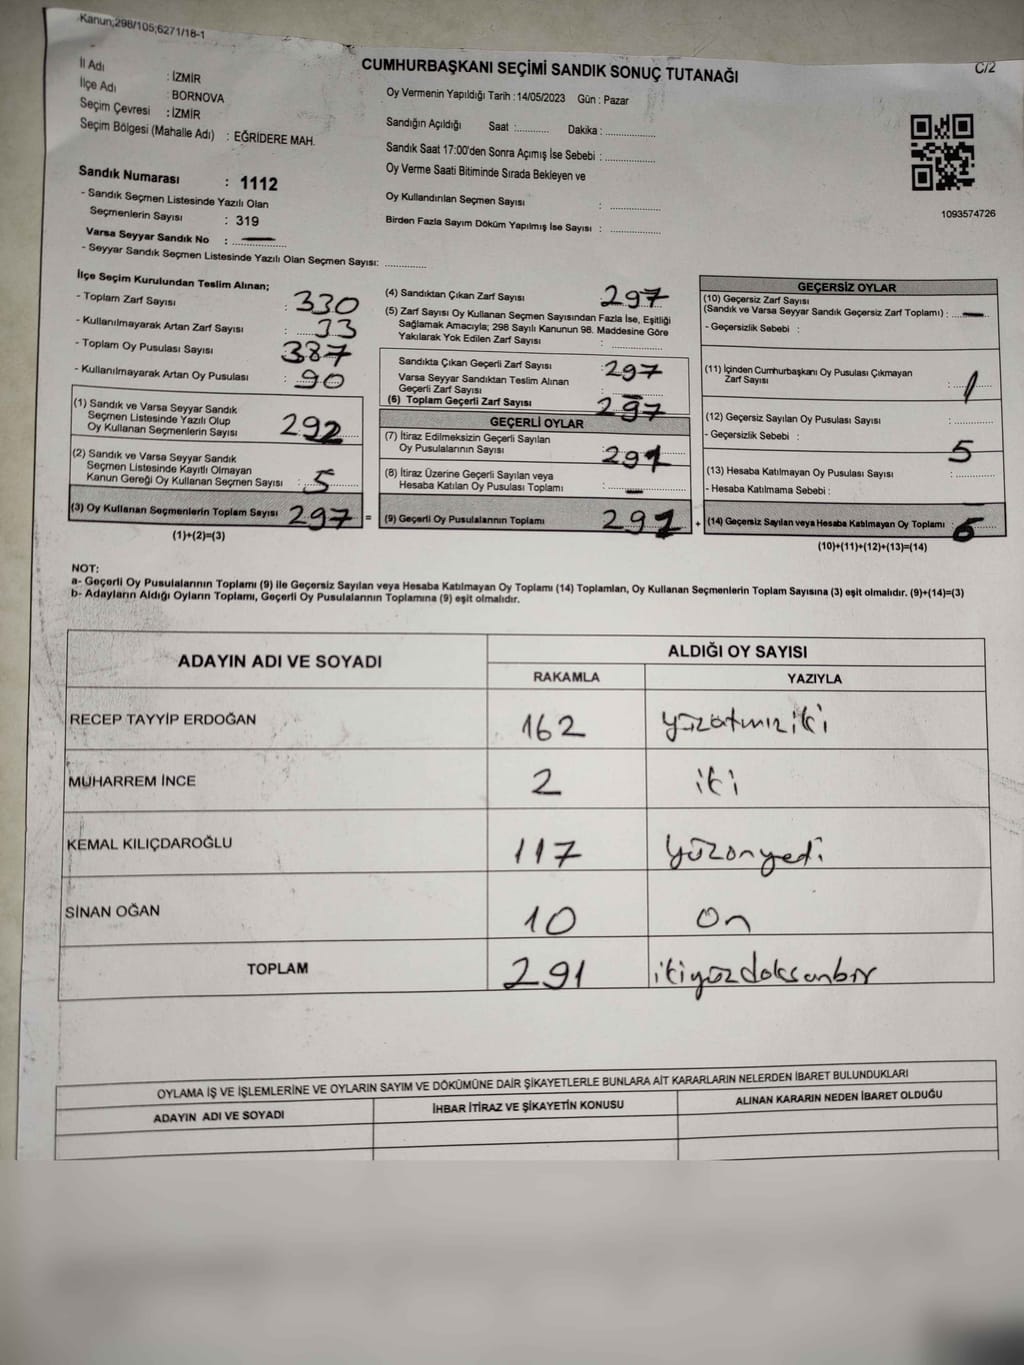 Kanun;298/105;6271/18-1
C/2
CUMHURBAŞKANI SEÇİMİ SANDIK SONUÇ TUTANAĞI
İl Adı : İZMİR
İlçe Adı : BORNOVA
Seçim Çevresi : İZMİR
Seçim Bölgesi (Mahalle Adı) : EĞRİDERE MAH.
Sandık Numarası : 1112
- Sandık Seçmen Listesinde Yazılı Olan
Seçmenlerin Sayısı : 319
Varsa Seyyar Sandık No : —
- Seyyar Sandık Seçmen Listesinde Yazılı Olan Seçmen Sayısı: ............
Oy Vermenin Yapıldığı Tarih : 14/05/2023 Gün : Pazar
Sandığın Açıldığı Saat :........... Dakika : ...............
Sandık Saat 17:00'den Sonra Açımış İse Sebebi : ...............
Oy Verme Saati Bitiminde Sırada Bekleyen ve
Oy Kullandırılan Seçmen Sayısı : ...............
Birden Fazla Sayım Döküm Yapılmış İse Sayısı : ...............
1093574726
İlçe Seçim Kurulundan Teslim Alınan;
- Toplam Zarf Sayısı : 330
- Kullanılmayarak Artan Zarf Sayısı : 33
- Toplam Oy Pusulası Sayısı : 387
- Kullanılmayarak Artan Oy Pusulası : 90
(1) Sandık ve Varsa Seyyar Sandık
Seçmen Listesinde Yazılı Olup
Oy Kullanan Seçmenlerin Sayısı 292
(2) Sandık ve Varsa Seyyar Sandık
Seçmen Listesinde Kayıtlı Olmayan
Kanun Gereği Oy Kullanan Seçmen Sayısı : 5
(3) Oy Kullanan Seçmenlerin Toplam Sayısı 297 =
(1)+(2)=(3)
(4) Sandıktan Çıkan Zarf Sayısı 297
(5) Zarf Sayısı Oy Kullanan Seçmen Sayısından Fazla İse, Eşitliği
Sağlamak Amacıyla; 298 Sayılı Kanunun 98. Maddesine Göre
Yakılarak Yok Edilen Zarf Sayısı : ...............
Sandıkta Çıkan Geçerli Zarf Sayısı : 297
Varsa Seyyar Sandıktan Teslim Alınan
Geçerli Zarf Sayısı : —
(6) Toplam Geçerli Zarf Sayısı 297
GEÇERLİ OYLAR
(7) İtiraz Edilmeksizin Geçerli Sayılan
Oy Pusulalarının Sayısı 291
(8) İtiraz Üzerine Geçerli Sayılan veya
Hesaba Katılan Oy Pusulası Toplamı : —
(9) Geçerli Oy Pusulalarının Toplamı 291 +
GEÇERSİZ OYLAR
(10) Geçersiz Zarf Sayısı
(Sandık ve Varsa Seyyar Sandık Geçersiz Zarf Toplamı) : —
- Geçersizlik Sebebi :
(11) İçinden Cumhurbaşkanı Oy Pusulası Çıkmayan
Zarf Sayısı : 1
(12) Geçersiz Sayılan Oy Pusulası Sayısı : ...........
- Geçersizlik Sebebi : 5
(13) Hesaba Katılmayan Oy Pusulası Sayısı : ...........
- Hesaba Katılmama Sebebi :
(14) Geçersiz Sayılan veya Hesaba Katılmayan Oy Toplamı 6
(10)+(11)+(12)+(13)=(14)
NOT:
a- Geçerli Oy Pusulalarının Toplamı (9) ile Geçersiz Sayılan veya Hesaba Katılmayan Oy Toplamı (14) Toplamları, Oy Kullanan Seçmenlerin Toplam Sayısına (3) eşit olmalıdır. (9)+(14)=(3)
b- Adayların Aldığı Oyların Toplamı, Geçerli Oy Pusulalarının Toplamına (9) eşit olmalıdır.
ADAYIN ADI VE SOYADI ALDIĞI OY SAYISI
RAKAMLA YAZIYLA
RECEP TAYYİP ERDOĞAN 162 yüzatmışiki
MUHARREM İNCE 2 iki
KEMAL KILIÇDAROĞLU 117 yüzonyedi
SİNAN OĞAN 10 on
TOPLAM 291 ikiyüzdoksanbir
OYLAMA İŞ VE İŞLEMLERİNE VE OYLARIN SAYIM VE DÖKÜMÜNE DAİR ŞİKAYETLERLE BUNLARA AİT KARARLARIN NELERDEN İBARET BULUNDUKLARI
ADAYIN ADI VE SOYADI İHBAR İTİRAZ VE ŞİKAYETİN KONUSU ALINAN KARARIN NEDEN İBARET OLDUĞU